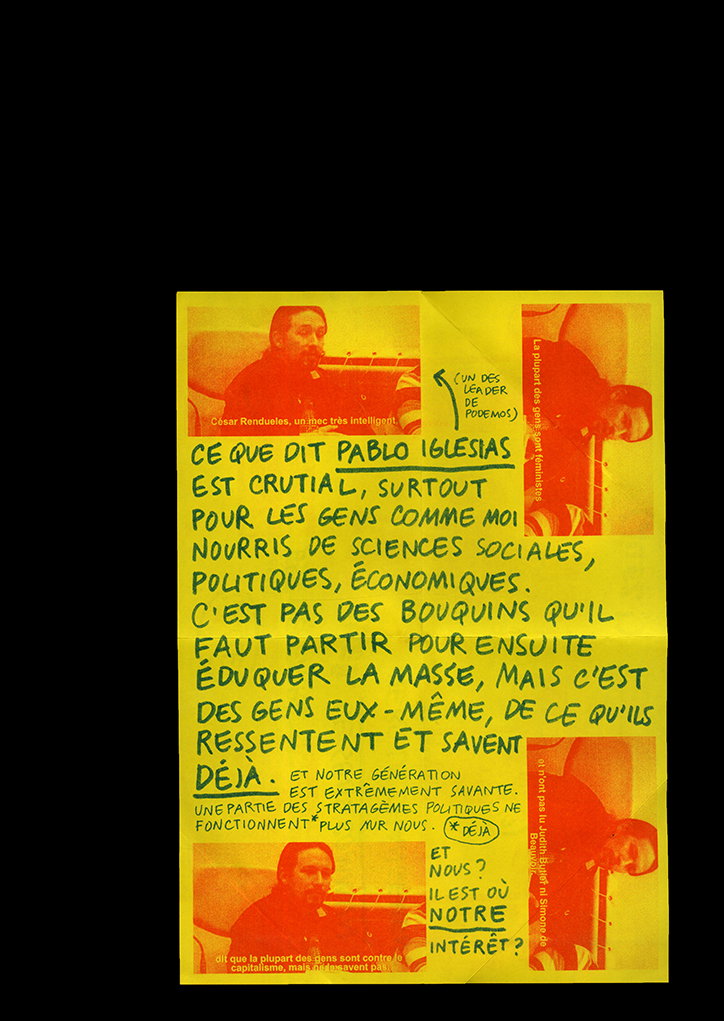 César Rendueles, un mec très intelligent
(UN DES
LEADER
DE
PODEMOS)
La plupart des gens sont féministes
CE QUE DIT PABLO IGLESIAS
EST CRUTIAL, SURTOUT
POUR LES GENS COMME MOI
NOURRIS DE SCIENCES SOCIALES,
POLITIQUES, ÉCONOMIQUES.
C'EST PAS DES BOUQUINS QU'IL
FAUT PARTIR POUR ENSUITE
ÉDUQUER LA MASSE, MAIS C'EST
DES GENS EUX-MÊME, DE CE QU'ILS
RESSENTENT ET SAVENT
DÉJÀ. ET NOTRE GÉNÉRATION
EST EXTRÊMEMENT SAVANTE.
UNE PARTIE DES STRATAGÈMES POLITIQUES NE
FONCTIONNENT* PLUS SUR NOUS. (* DÉJÀ)
et n'ont pas lu Judith Butler ni Simone de
Beauvoir
dit que la plupart des gens sont contre le
capitalisme, mais ne le savent pas.
ET
NOUS?
IL EST OÙ
NOTRE
INTÉRÊT?